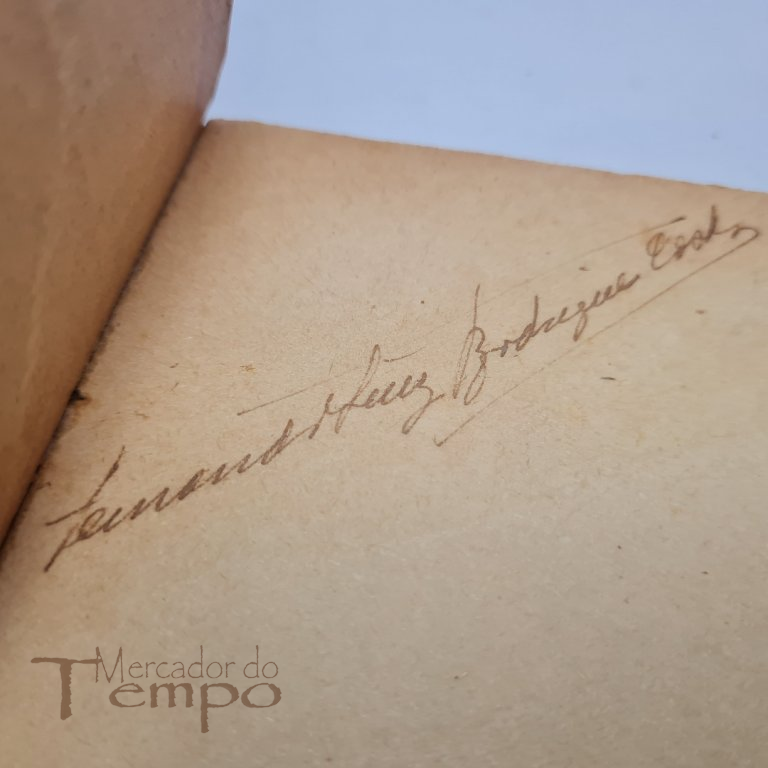 Fernando Luiz Rodrigues Costa
Mercador do
Tempo